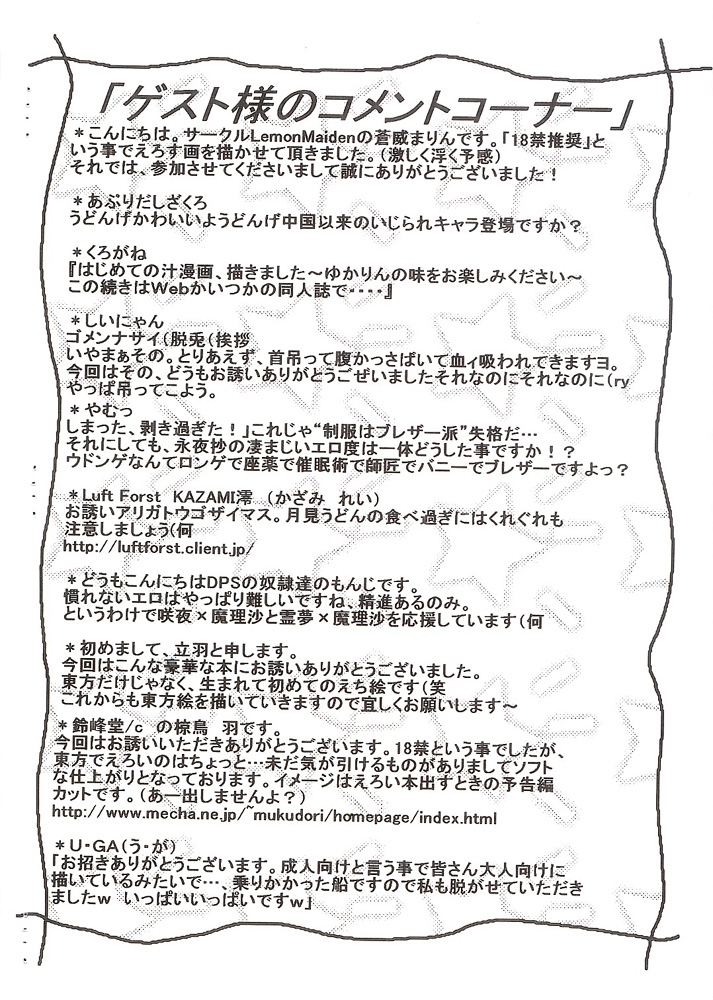 「ゲスト様のコメントコーナー」
＊こんにちは。サークルLemonMaidenの蒼威まりんです。「18禁推奨」と
いう事でえろす画を描かせて頂きました。（激しく浮く予感）
それでは、参加させてくださいまして誠にありがとうございました！
＊あぶりだしざくろ
うどんげかわいいようどんげ中国以来のいじられキャラ登場ですか？
＊くろがね
『はじめての汁漫画、描きました～ゆかりんの味をお楽しみください～
この続きはWebかいつかの同人誌で・・・・』
＊しいにゃん
ゴメンナサイ（脱兎（挨拶
いやまぁその。とりあえず、首吊って腹かっさばいて血ィ吸われてきますヨ。
今回はその、どうもお誘いありがとうごぜいましたそれなのにそれなのに（ry
やっぱ吊ってこよう。
＊やむっ
しまった、剥き過ぎた！」これじゃ“制服はブレザー派”失格だ…
それにしても、永夜抄の凄まじいエロ度は一体どうした事ですか！？
ウドンゲなんてロンゲで座薬で催眠術で師匠でバニーでブレザーですよっ？
＊Luft Forst　KAZAMI澪　（かざみ　れい）
お誘いアリガトウゴザイマス。月見うどんの食べ過ぎにはくれぐれも
注意しましょう（何
http://luftforst.client.jp/
＊どうもこんにちはDPSの奴隷達のもんじです。
慣れないエロはやっぱり難しいですね、精進あるのみ。
というわけで咲夜×魔理沙と霊夢×魔理沙を応援しています（何
＊初めまして、立羽と申します。
今回はこんな豪華な本にお誘いありがとうございました。
東方だけじゃなく、生まれて初めてのえち絵です（笑
これからも東方絵を描いていきますので宜しくお願いします～
＊鈴峰堂/c　の椋鳥　羽です。
今回はお誘いいただきありがとうございます。18禁という事でしたが、
東方でえろいのはちょっと…未だ気が引けるものがありましてソフト
な仕上がりとなっております。イメージはえろい本出すときの予告編
カットです。（あー出しませんよ？）
http://www.mecha.ne.jp/~mukudori/homepage/index.html
＊U・GA（う・が）
「お招きありがとうございます。成人向けと言う事で皆さん大人向けに
描いているみたいで…、乗りかかった船ですので私も脱がせていただき
ましたw　いっぱいいっぱいですw」